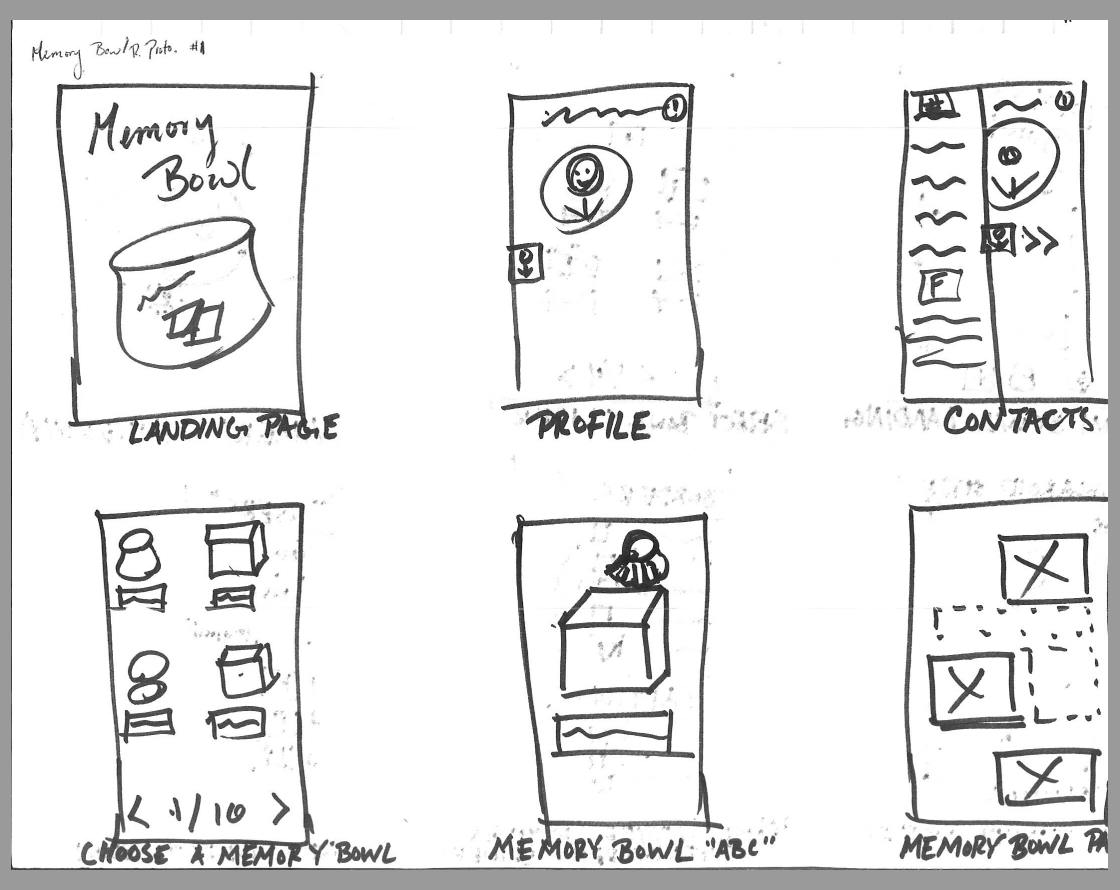 Memory Bowl R. Proto. #1
Memory
Bowl
LANDING PAGE
PROFILE
F
CONTACTS
< 1/10 >
CHOOSE A MEMORY BOWL
MEMORY BOWL "ABC"
MEMORY BOWL PA